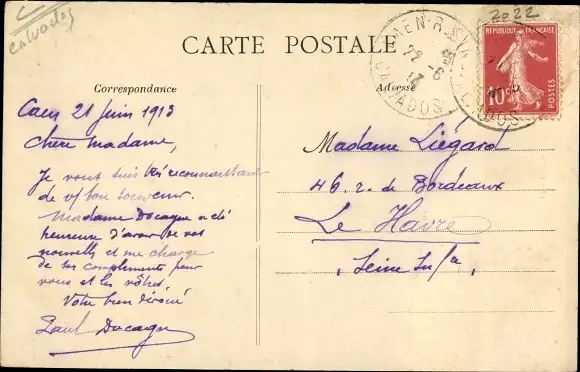 C
Calvados
2022
CARTE POSTALE
Correspondance
Adresse
CAEN R. S
22 -6
13
CALVADOS
REPUBLIQUE FRANÇAISE
10c
POSTES
Caen 21 juin 1913
Chère Madame,
Je vous suis très reconnaissant
de v/ bon souvenir.
Madame Docagne a été
heureuse d'avoir de vos
nouvelles et me charge
de ses compliments pour
vous et les vôtres.
Votre bien dévoué
Paul Docagne
Madame Liégard
46. r. de Bordeaux
Le Havre
Seine Infre